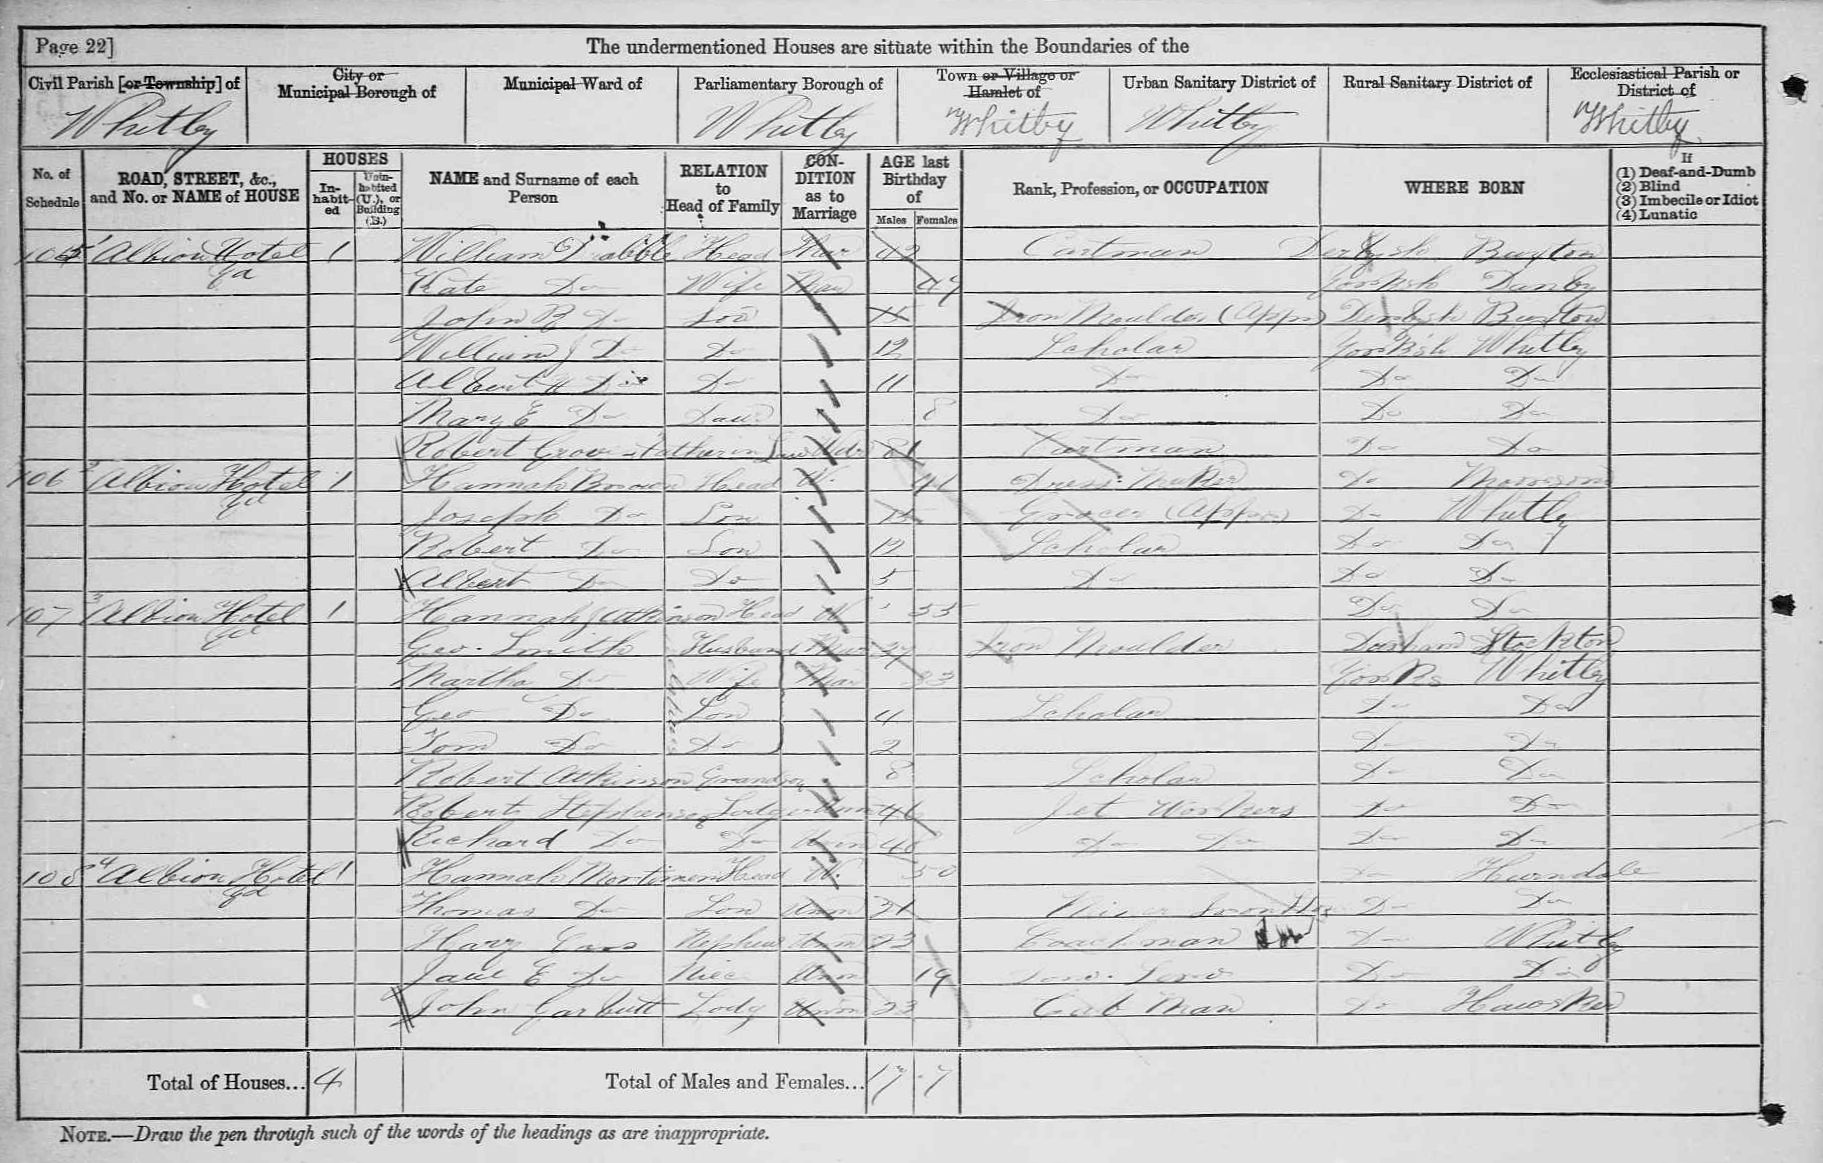 Page 22]
The undermentioned Houses are situate within the Boundaries of the
Civil Parish [or Township] of
City or Municipal Borough of
Municipal Ward of
Parliamentary Borough of
Town or Village or Hamlet of
Urban Sanitary District of
Rural Sanitary District of
Ecclesiastical Parish or District of
Whitby Whitby Whitby Whitby Whitby
No. of Schedule
ROAD, STREET, &c., and No. or NAME of HOUSE
HOUSES
In-habit-ed
Unin-habited (U.), or Building (B.)
NAME and Surname of each Person
RELATION to Head of Family
CON-DITION as to Marriage
AGE last Birthday of
Males Females
Rank, Profession, or OCCUPATION
WHERE BORN
If
(1) Deaf-and-Dumb
(2) Blind
(3) Imbecile or Idiot
(4) Lunatic
105 1 Albion Hotel yd 1 William Head Mar 42 Cartman Derbysh Buxton
Kate Do Wife Mar Yorksh Danby
John R Do Son 15 Iron Moulder (Appr) Derbysh Buxton
William J Do Do 12 Scholar Yorksh Whitby
Albert H Do Do 11 Do Do Do
Mary E Do Daur 8 Do Do Do
Robert Father in Law Widr 81 Cartman Do Do
106 2 Albion Hotel yd 1 Hannah Brown Head W. 41 Dress Maker Do
Joseph Do Son 15 Grocer (Appr) Do Whitby
Robert Do Son 12 Scholar Do Do
Albert Do Do 5 Do Do Do
107 3 Albion Hotel yd 1 Hannah J Atkinson Head W 55 Do Do
Geo. Smith Husband Mar 27 Iron Moulder Durham Stockton
Martha Do Wife Mar 23 Yorks Whitby
Geo Do Son 4 Scholar Do Do
Tom Do Do 2 Do Do
Robert Atkinson Grandson 8 Scholar Do Do
Robert Stephenson Lodger Unm 46 Jet Workers Do Do
Richard Do Do Unm 48 Do Do Do Do
108 4 Albion Hotel yd 1 Hannah Mortimer Head W. 50 Do
Thomas Do Son Unm 21 Miner Do Do
Harry Nephew Unm 23 Coachman Do Whitby
Jane E Do Niece Unm 19 Dom. Serv Do Do
John Garbutt Lodg Unm 23 Cab Man Do Hawsker
Total of Houses... 4
Total of Males and Females... 17 7
NOTE.—Draw the pen through such of the words of the headings as are inappropriate.